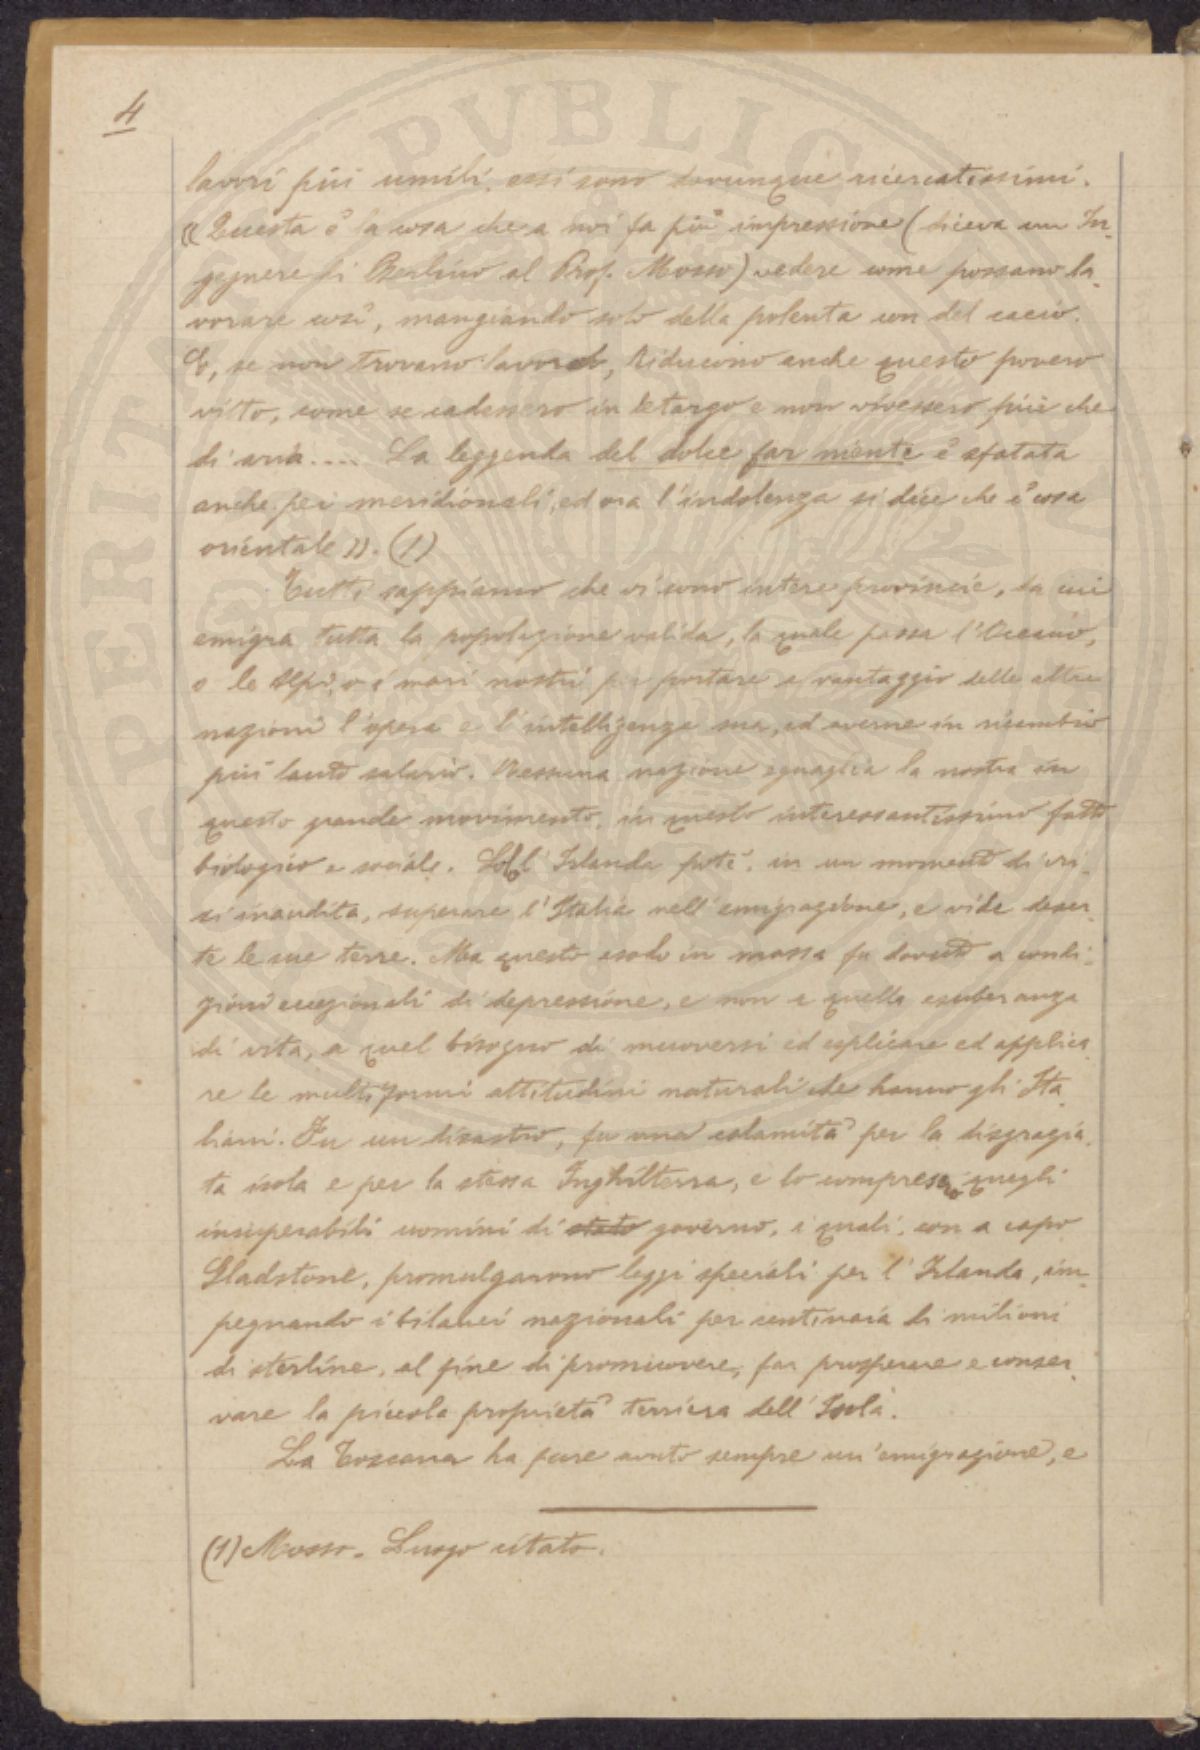 4
lavori più umili, essi sono dovunque ricercatissimi.
«Questa è la cosa che a noi fa più impressione (diceva un In-
gegnere di Berlino al Prof. Mosso) vedere come possano la-
vorare così, mangiando solo della polenta con del cacio.
E, se non trovano lavoro, riducono anche questo povero
vitto, come se cadessero in letargo e non vivessero più che
di aria.... La leggenda del dolce far niente è sfatata
anche pei meridionali, ed ora l'indolenza si dice che è cosa
orientale». (1)
Tutti sappiamo che vi sono intere provincie, da cui
emigra tutta la popolazione valida, la quale passa l'Oceano,
o le Alpi, o i mari nostri per portare a vantaggio delle altre
nazioni l'opera e l'intelligenza sua, ed averne in ricambio
più lauto salario. Nessuna nazione eguaglia la nostra in
questo grande movimento, in questo interessantissimo fatto
biologico e sociale. Sol l'Irlanda potè, in un momento di cri-
si inaudita, superare l'Italia nell'emigrazione, e vide deser-
te le sue terre. Ma questo esodo in massa fu dovuto a condi-
zioni eccezionali di depressione, e non a quella esuberanza
di vita, a quel bisogno di muoversi ed esplicare ed applica-
re le multiformi attitudini naturali che hanno gli Ita-
liani. Fu un disastro, fu una calamità per la disgrazia-
ta isola e per la stessa Inghilterra, e lo compresero quegli
insuperabili uomini di stato governo, i quali, con a capo
Gladstone, promulgarono leggi speciali per l'Irlanda, im-
pegnando i bilanci nazionali per centinaia di milioni
di sterline, al fine di promuovere, far prosperare e conser-
vare la piccola proprietà terriera dell'Isola.
La Toscana ha pure avuto sempre un'emigrazione, e
(1) Mosso. Luogo citato.
PVBLICA